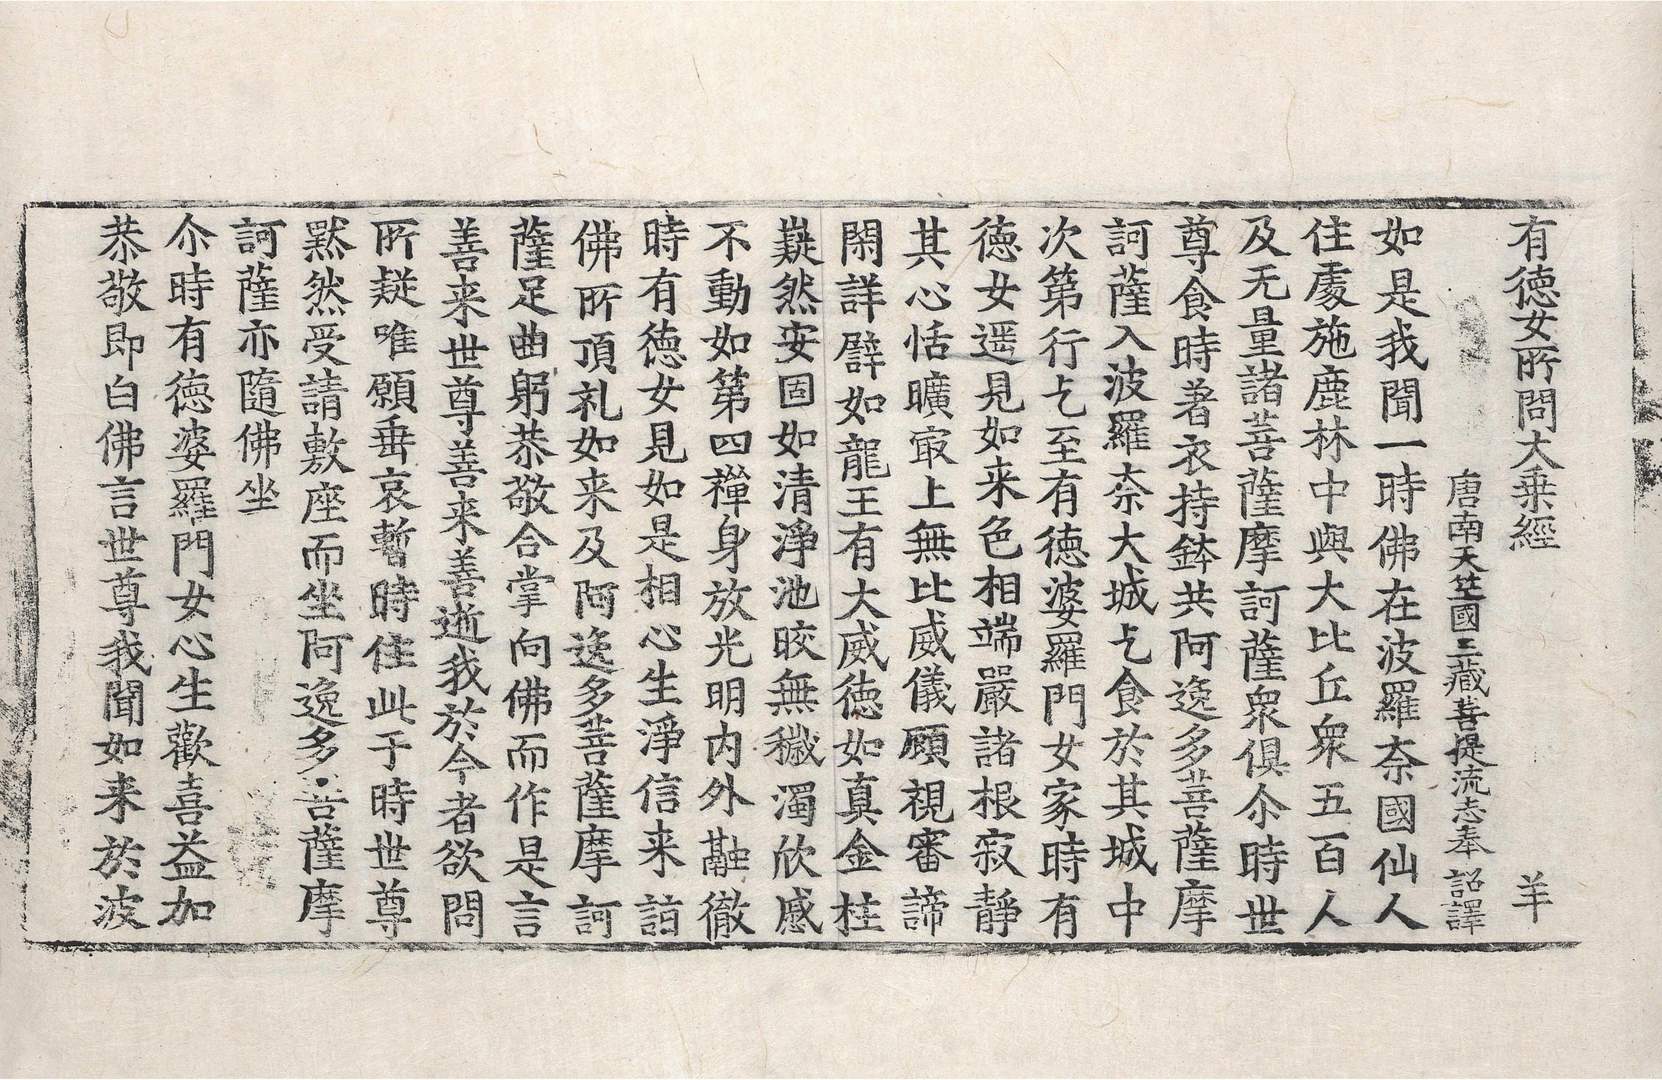 有德女所問大乗經　羊
唐南天竺國三藏菩提流志奉 詔譯
如是我聞一時佛在波羅奈國仙人
住處施鹿林中與大比丘衆五百人
及无量諸菩薩摩訶薩衆俱尒時世
尊食時著衣持鉢共阿逸多菩薩摩
訶薩入波羅奈大城乞食於其城中
次第行乞至有德婆羅門女家時有
德女遥見如来色相端嚴諸根寂靜
其心恬曠㝡上無比威儀顧視審諦
閑詳譬如龍王有大威德如真金柱
嶷然安固如清淨池皎無穢濁欣感
不動如第四禪身放光明内外融徹
時有德女見如是相心生淨信来詣
佛所頂礼如来及阿逸多菩薩摩訶
薩足曲躬恭敬合掌向佛而作是言
善来世尊善来善逝我於今者欲問
所疑唯願垂哀暫時住此于時世尊
黙然受請敷座而坐阿逸多菩薩摩
訶薩亦隨佛坐
尒時有德婆羅門女心生歡喜益加
恭敬即白佛言世尊我聞如来於波